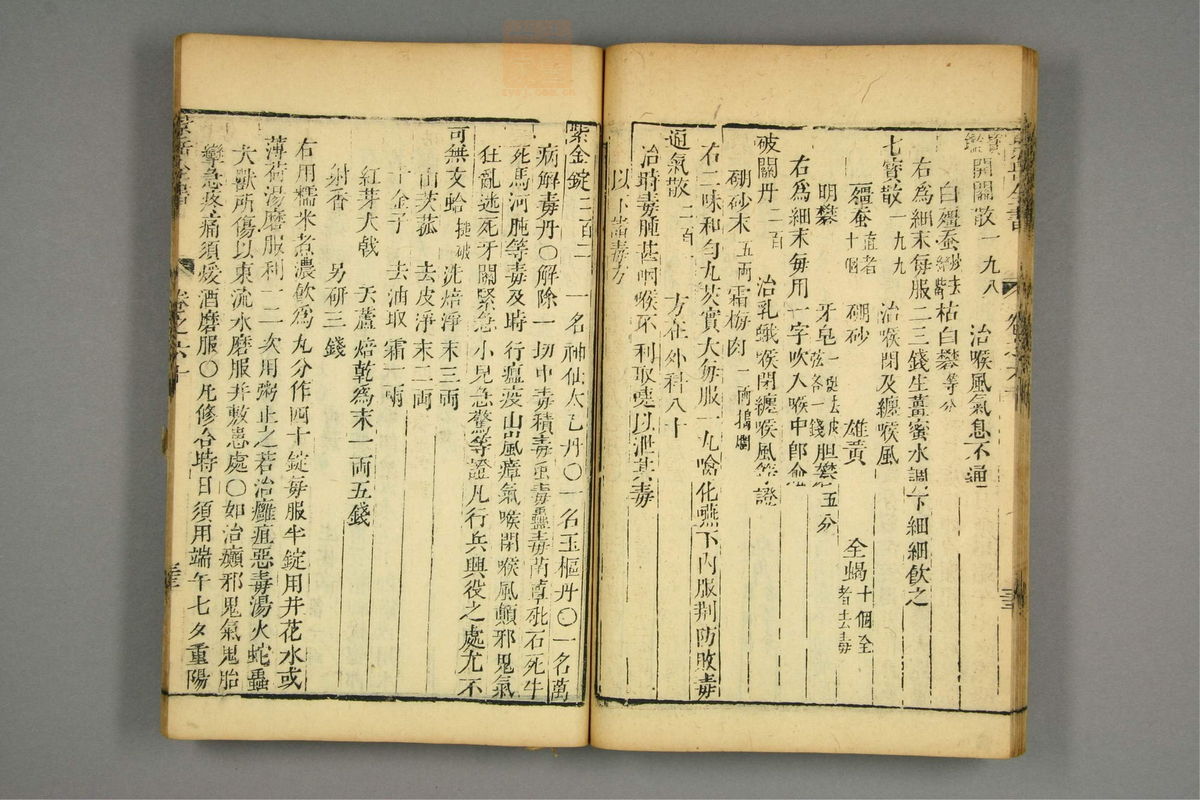 景岳全書
開關散一九八　治喉風氣息不通
白殭蚕炒去絲嘴　枯白礬等分
右為細末每服二三錢生薑蜜水調下細細飲之
七寶散一九九　治喉閉及纏喉風
殭蚕直者十個　硼砂　雄黃　全蝎十個全者去毒
明礬　牙皂一莢去皮弦各一錢　胆礬五分
右為細末每用一字吹入喉中即愈
破關丹二百　治乳蛾喉閉纏喉風等證
硼砂末五両　霜梅肉一両搗爛
右二味和勻丸芡實大每服一丸噙化嚥下內服荆防敗毒
通氣散二百　方在外科八十
治時毒腫甚咽喉不利取嚏以泄其毒
以下諸毒方
紫金錠二百二　一名神仙太乙丹〇一名玉樞丹〇一名萬
病解毒丹〇解除一切中毒積毒蛊毒蠱毒菌蕈砒石死牛
死馬河肫等毒及時行瘟疫山嵐瘴氣喉閉喉風顛邪鬼氣
狂亂迷死牙關緊急小兒急驚等證凡行兵興役之處尤不
可無文蛤搥破洗焙淨末三両
山茨菰　去皮淨末二両
千金子　去油取霜一両
紅芽大戟　去蘆焙乾為末一両五錢
射香　另研三錢
右用糯米煮濃飲為丸分作四十錠每服半錠用井花水或
薄荷湯磨服利一二次用粥止之若治癰疽惡毒湯火蛇蟲
犬獸所傷以東流水磨服并敷患處〇如治癲邪鬼氣鬼胎
攣急疼痛須煖酒磨服〇凡修合時日須用端午七夕重陽